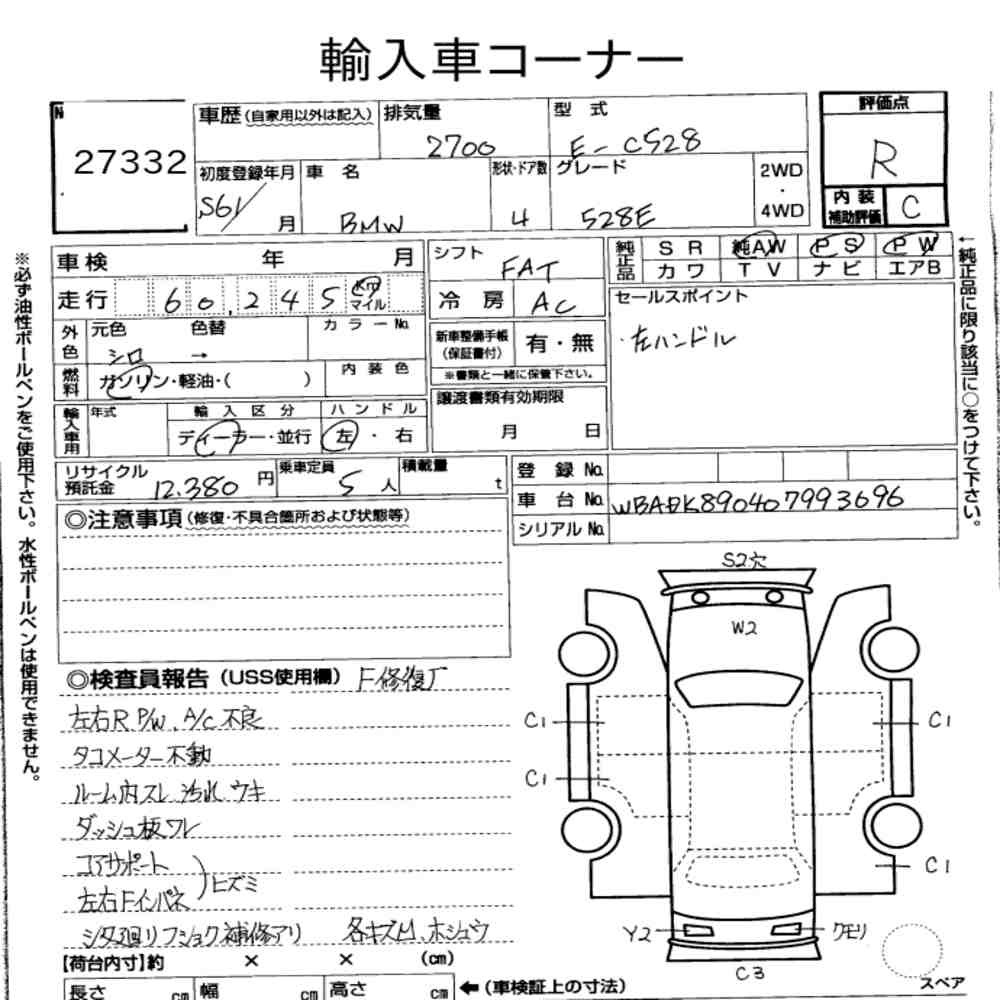 輸入車コーナー
N
27332
車歴(自家用以外は記入)
排気量
2700
型 式
E-C528
評価点
R
内装補助評価
C
初度登録年月
S61/ 月
車 名
BMW
形状・ドア数
4
グレード
528E
2WD
・
4WD
車検 年 月
走行 60,245 Km マイル
シフト
FAT
冷 房
AC
純正品
S R
純AW
P S
P W
カ ワ
T V
ナ ビ
エアB
外色
元色 色替
シロ →
カ ラ ー No.
燃料
ガソリン・軽油・( )
内 装 色
新車整備手帳
(保証書付)
有・無
※書類と一緒に保管下さい。
セールスポイント
・左ハンドル
輸入車用
年式
輸 入 区 分
ディーラー・並行
ハ ン ド ル
左 ・ 右
譲渡書類有効期限
月 日
リサイクル
預託金 12.380 円
乗車定員
5 人
積載量
t
登 録 No.
車 台 No.
シリアル No.
◎注意事項(修復・不具合箇所および状態等)
◎検査員報告(USS使用欄)
左右R P/W、A/C 不良
タコメーター不動
ルーム内スレ 汚れ ウキ
ダッシュ板ワレ
コアサポート
左右Fインパネ
)ヒズミ
各キズ凹、ホシュウ
【荷台内寸】約 × × (cm)
長さ cm 幅 cm 高さ cm
←(車検証上の寸法)
S2穴
W2
C1
C1
C1
C1
Y2
クモリ
C3
スペア
※必ず油性ボールペンをご使用下さい。水性ボールペンは使用できません。
←純正品に限り該当に○をつけて下さい。